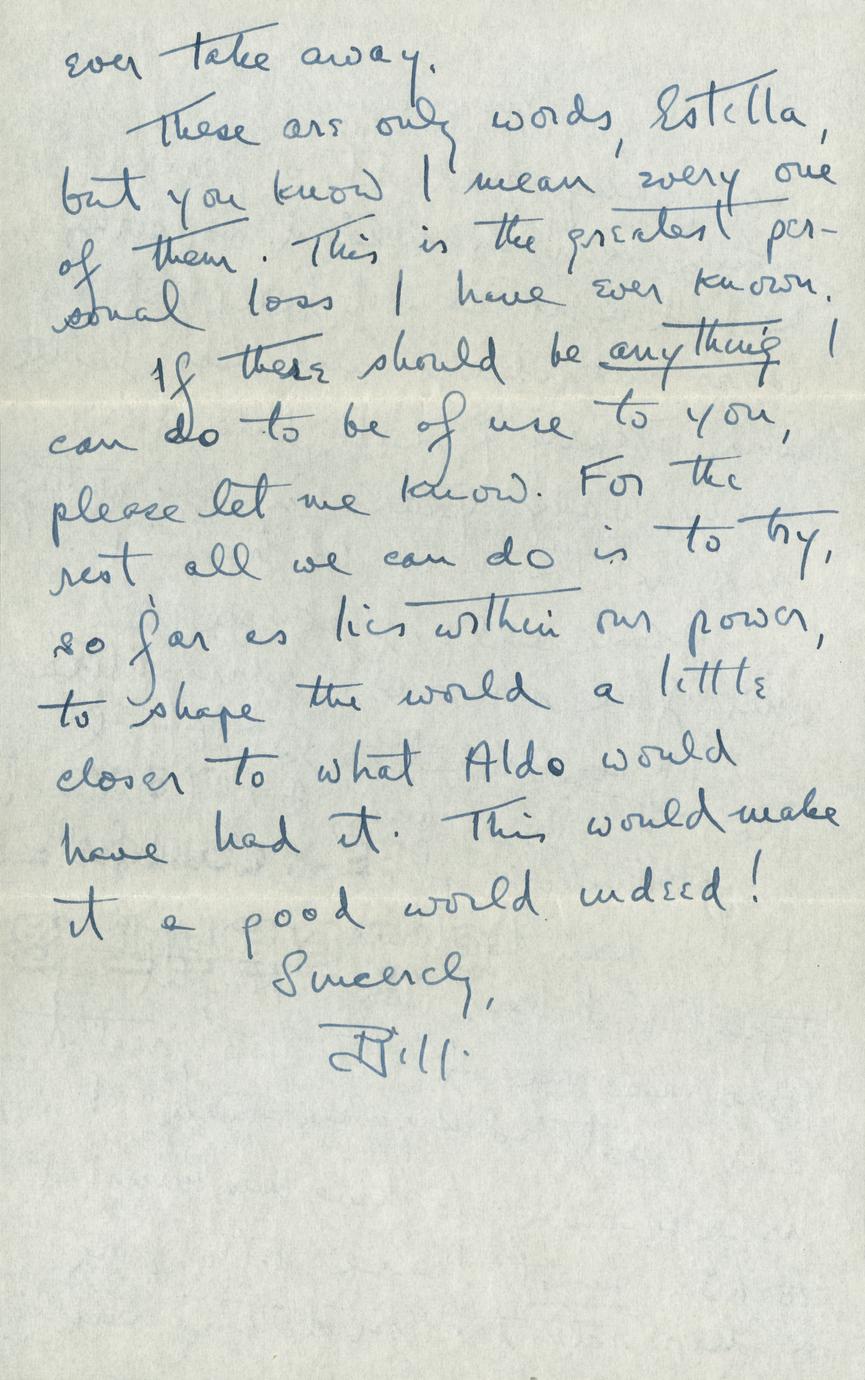 ever take away.
These are only words, Estella,
but you know I mean every one
of them. This is the greatest per-
sonal loss I have ever known.
If there should be anything I
can do to be of use to you,
please let me know. For the
rest, all we can do is to try,
so far as lies within our power,
to shape the world a little
closer to what Aldo would
have had it. This would make
it a good world indeed!
Sincerely,
Bill.